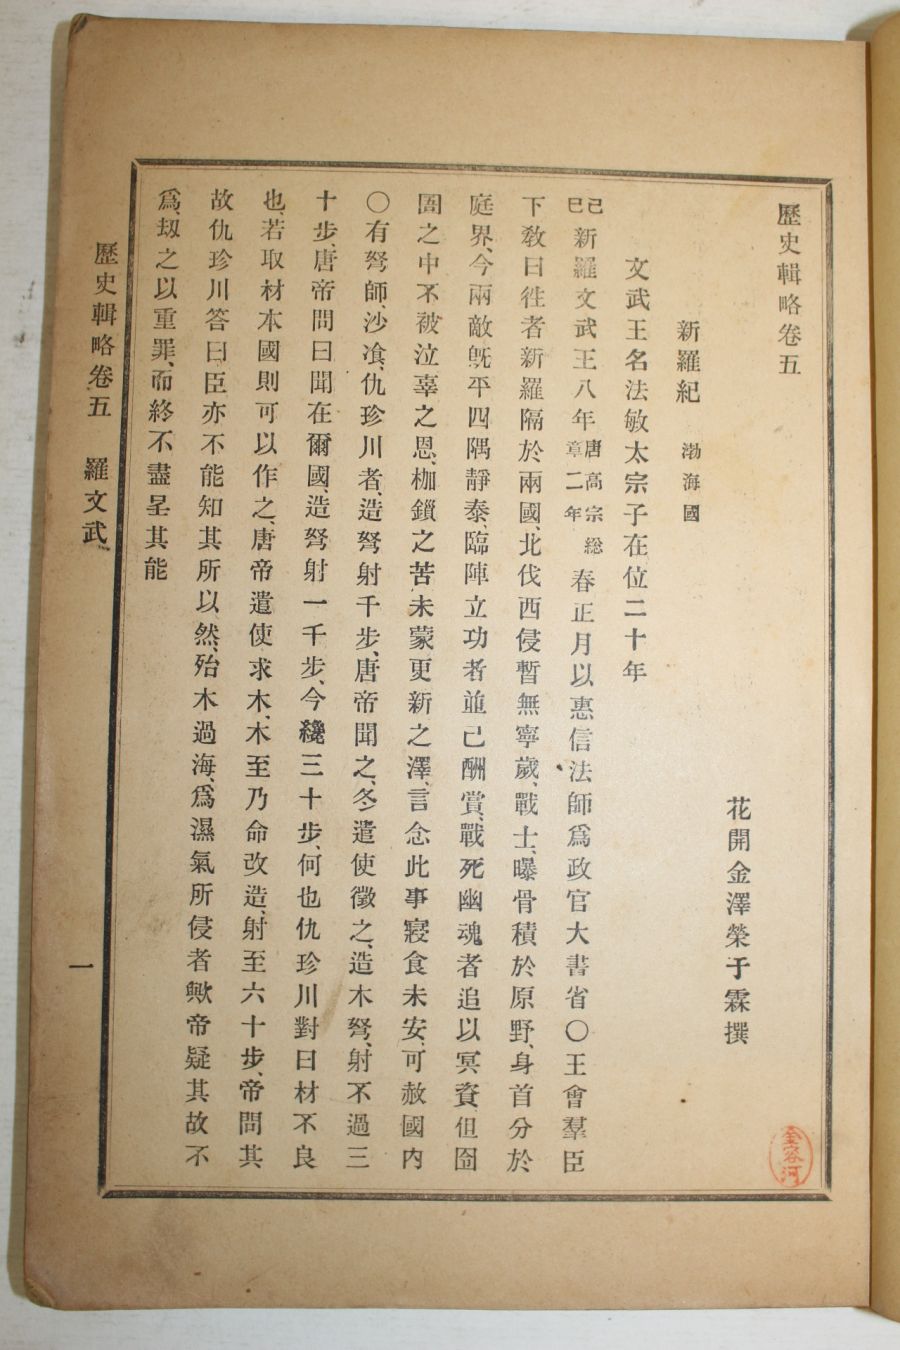 歷史輯略卷五
花開金澤榮于霖撰
新羅紀 渤海國
文武王名法敏太宗子在位二十年
己巳新羅文武王八年唐高宗総章二年春正月以惠信法師爲政官大書省〇王會羣臣
下敎曰徃者新羅隔於兩國、北伐西侵暫無寧歲、戰士、曝骨積於原野、身首分於
庭界、今兩敵旣平四隅靜泰、臨陣立功者並已酬賞、戰死幽魂者追以冥資、但囹
圄之中不被泣辜之恩、枷鎖之苦未蒙更新之澤、言念此事寢食未安、可赦國內
〇有弩師、沙飡、仇珍川者、造弩射千步、唐帝聞之、冬遣使徵之、造木弩、射不過三
十步、唐帝問曰聞在爾國、造弩射一千步、今纔三十步、何也仇珍川對曰材不良
也、若取材本國則可以作之、唐帝遣使求木、木至乃命改造、射至六十步、帝問其
故仇珍川答曰臣亦不能知其所以然、殆木過海、爲濕氣所侵者歟帝疑其故不
爲、刼之以重罪、而終不盡呈其能
歷史輯略卷五 羅文武、
一
金容河